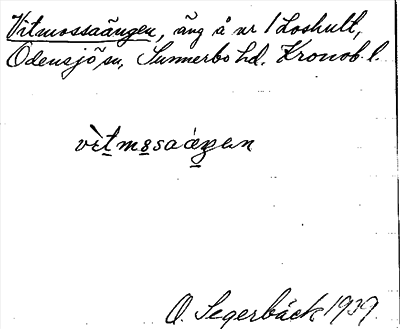 Vitmossaängen, äng å nr 1 Loshult,
Odensjö sn, Sunnerbo hd. Kronob. l.
vìtmosaáŋen
O. Segerbäck 1939